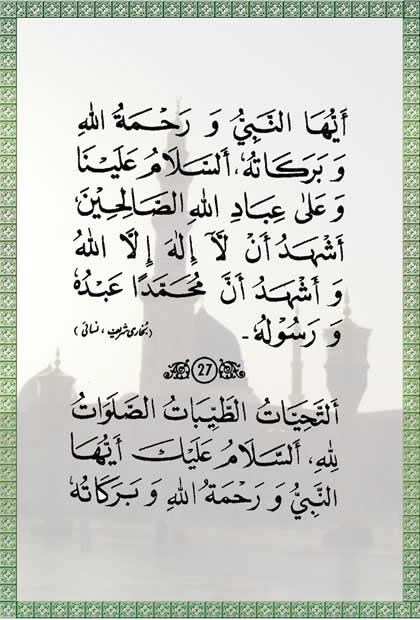 أَيُّهَا النَّبِيُّ وَ رَحْمَةُ اللهِ
وَ بَرَكَاتُهٗ، أَلسَّلَامُ عَلَيْنَا
وَ عَلٰى عِبَادِ اللهِ الصَّالِحِيْنَ،
أَشْهَدُ أَنْ لَّآ إِلٰهَ إِلَّا اللهُ
وَ أَشْهَدُ أَنَّ مُحَمَّدًا عَبْدُهٗ
وَ رَسُوْلُهٗ۔ (بخاری شریف، نسائی)
27
أَلتَّحِيَّاتُ الطَّيِّبَاتُ الصَّلَوَاتُ
لِلّٰهِ، أَلسَّلَامُ عَلَيْكَ أَيُّهَا
النَّبِيُّ وَ رَحْمَةُ اللهِ وَ بَرَكَاتُهٗ